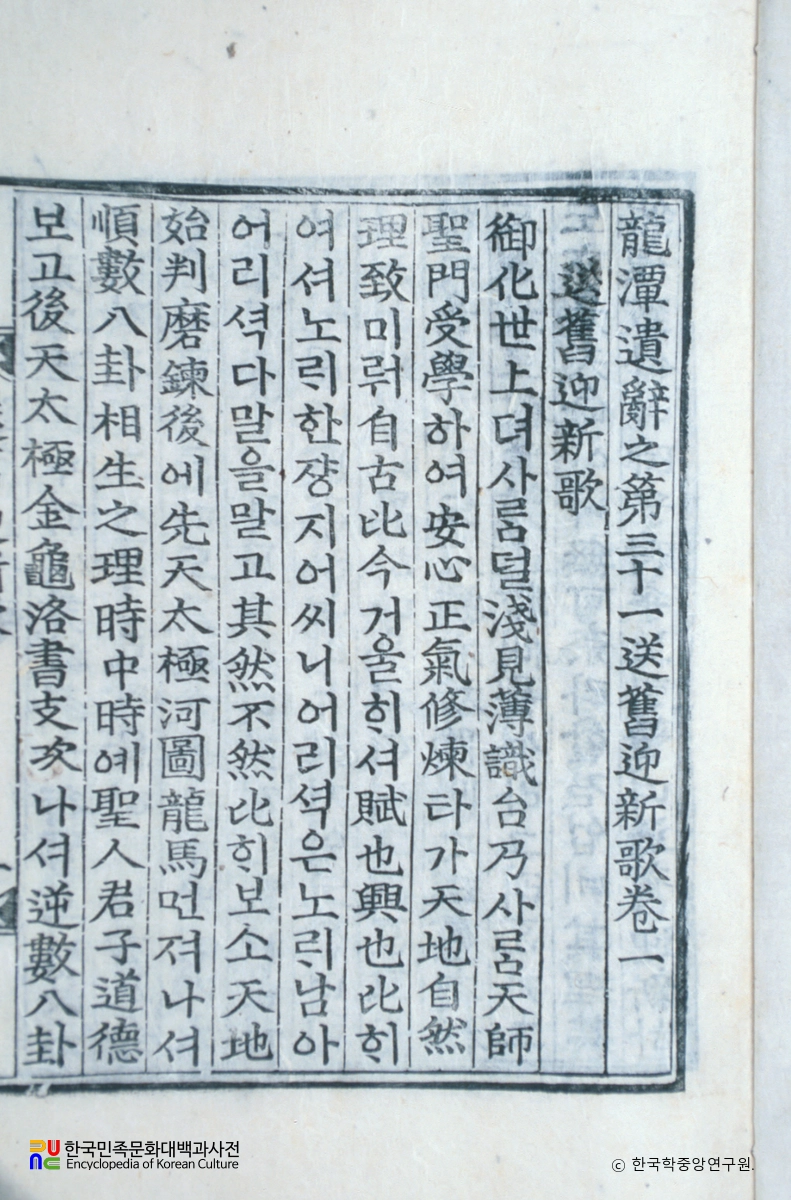 龍潭遺辭之第三十一送舊迎新歌卷一
送舊迎新歌
御化世上뎌사ᄅᆞᆷ덜淺見薄識台乃사ᄅᆞᆷ天師
聖門受學하여安心正氣修煉타가天地自然
理致미뤄自古比今거울ᄒᆡ셔賦也興也比ᄒᆡ
여셔노ᄅᆡ한쟝지어씨니어리셕은노ᄅᆡ남아
어리셕다말을말고其然不然比ᄒᆡ보소天地
始判磨鍊後에先天太極河圖龍馬먼져나셔
順數八卦相生之理時中時예聖人君子道德
보고後天太極金龜洛書支次나셔逆數八卦
한국민족문화대백과사전
Encyclopedia of Korean Culture
ⓒ 한국학중앙연구원.